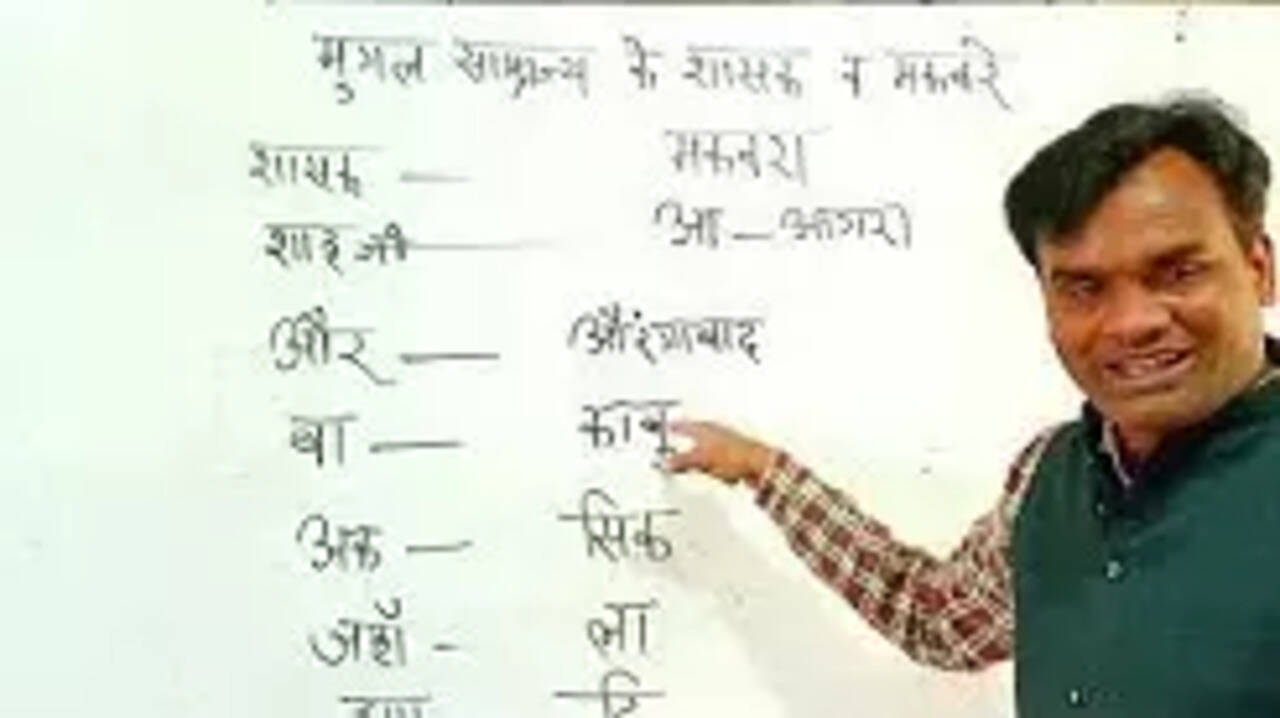 मुगल साम्राज्य के शासक व मकबरे
शासक — मकबरा
— आ — आगरा
और — औरंगाबाद
बा — काबु
अक — सिक
जहाँ - ला